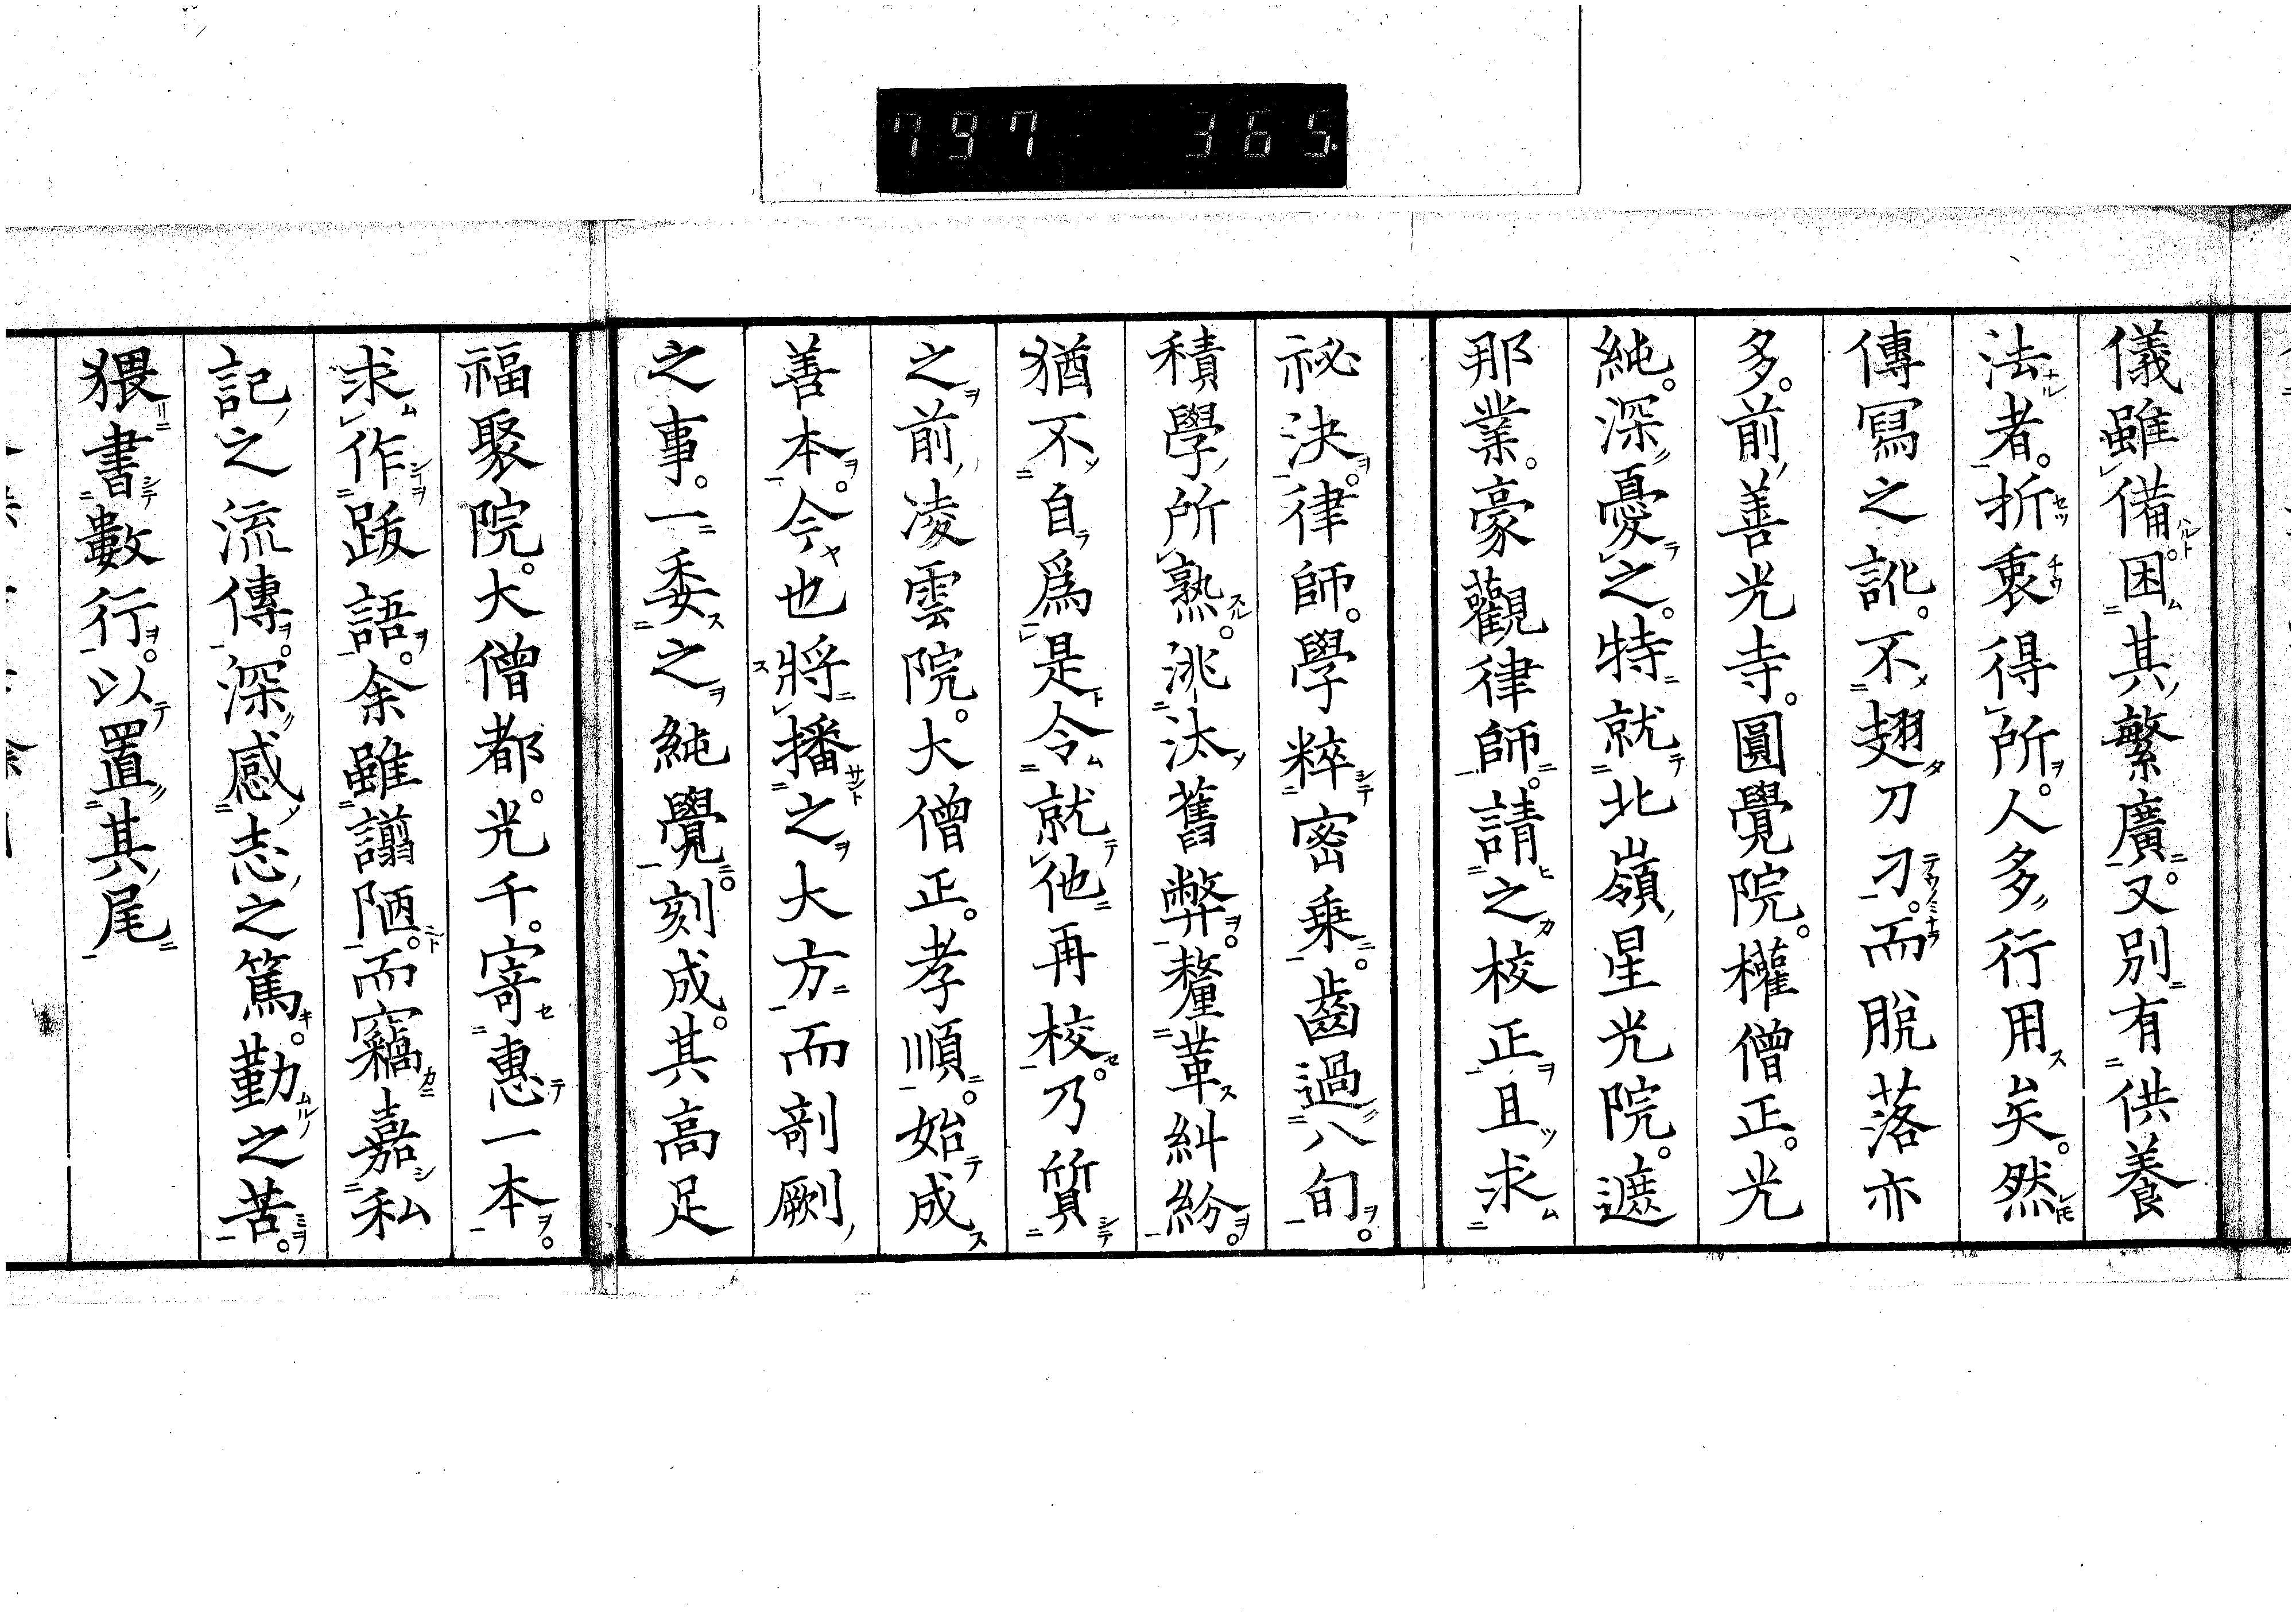 797 365.
儀雖備困其繁廣又別有供養
法者。折衷得所。人多行用矣。然
傳寫之訛。不翅刀刁。而脫落亦
多。前善光寺。圓覺院。權僧正。光
純。深憂之。特就北嶺星光院。遮
那業。豪觀律師。請之校正且求
祕決。律師。學粹密乗。齒過八旬。
積學所熟。洮汰舊弊。釐革糾紛。
猶不自爲是令就他再校。乃質
之前凌雲院。大僧正。孝順。始成
善本。今也將播之大方而剞劂
之事。一委之純覺。刻成。其高足
福聚院。大僧都。光千。寄惠一本。
求作跋語。余雖譾陋。而竊嘉私
記之流傳。深感志之篤。勤之苦。
猥書數行。以置其尾